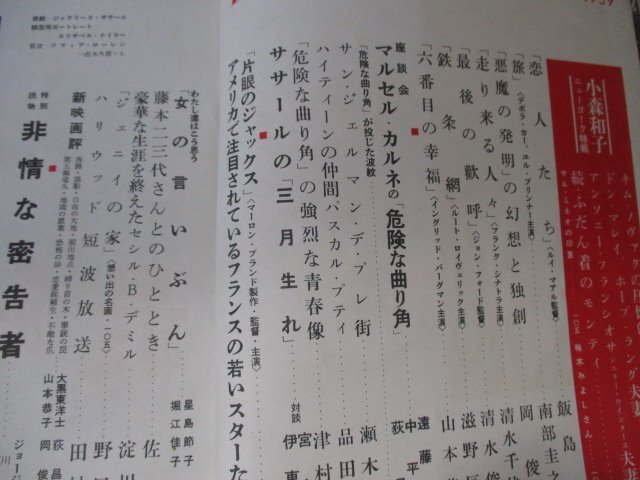 1959
小森和子
ニューヨーク特輯
キム・ノヴァクの
ドン・マレイ ホープ・ラング夫妻
アンソニー・フランシオサ シェリー・ウィンタース 夫妻
続ふだん着のモンティ
サル・ミネオの印象
一〇五 栫木みよしさん
「恋人たち」〈ルイ・マル監督〉 飯島
「旅」〈デボラ・カー、ユル・ブリンナー主演〉 南部圭之
「悪魔の発明」の幻想と独創 岡俊
「走り来る人々」〈フランク・シナトラ主演〉 清水千代
「最後の歓呼」〈ジョン・フォード監督〉 清水俊
「鉄条網」〈ルート・ロイヴェリック主演〉 滋野辰
「六番目の幸福」〈イングリッド・バーグマン主演〉 山本
座談会 マルセル・カルネの「危険な曲り角」 遠藤 中平 荻
「危険な曲り角」が投じた波紋
サン・ジェルマン・デ・プレ街 瀬木
ハイティーンの仲間パスカル・プティ 品田
「危険な曲り角」の強烈な青春像 津村
ササールの「三月生れ」 対談 宮 伊東
「片眼のジャックス」〈マーロン・ブランド製作・監督・主演〉
アメリカで注目されているフランスの若いスターた
わたし達はこう思う
「女の言いぶん」 星島節子 堀江佳子
藤本二三代さんとのひととき 佐
豪華な生涯を終えたセシル・B・デミル 淀川
「ジェニイの家」〈想い出の名画・一〇五〉 野口
ハリウッド短波放送 田村
新映画評 大黒東洋士 荻昌 山本恭子 岡俊
特別読物 非情な密告者 ジョージ
表紙・ジャクリーヌ・ササール
エリザベス・テイラー
目次・ソフィア・ローレン